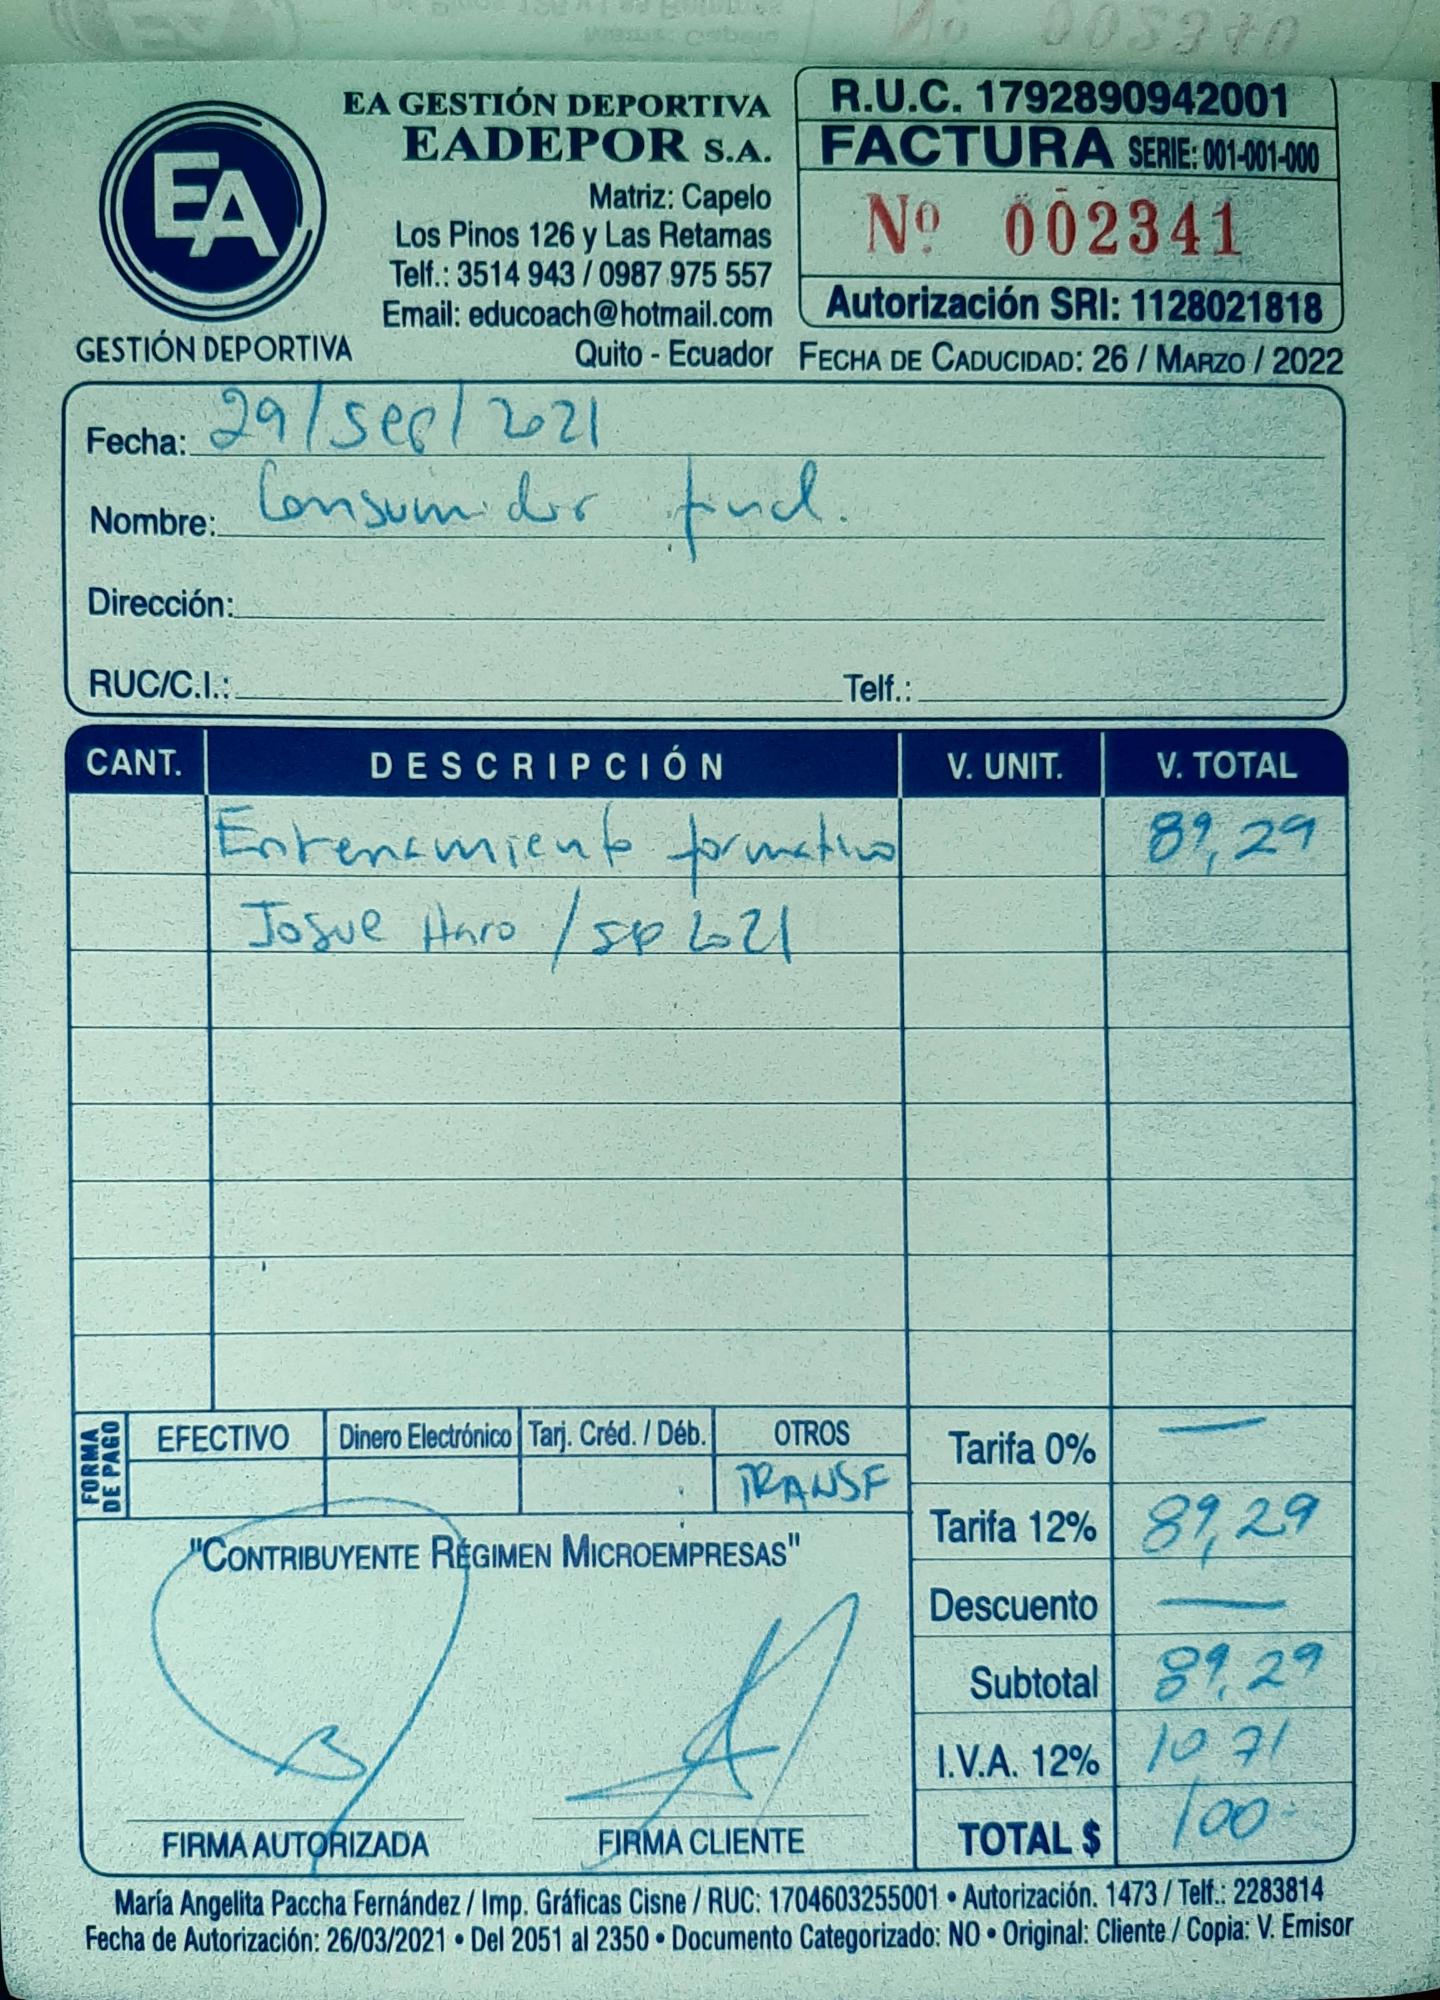 Nº 002340
EA GESTIÓN DEPORTIVA
EADEPOR S.A.
Matriz: Capelo
Los Pinos 126 y Las Retamas
Telf.: 3514 943 / 0987 975 557
Email: educoach@hotmail.com
Quito - Ecuador
EA
GESTIÓN DEPORTIVA
R.U.C. 1792890942001
FACTURA SERIE: 001-001-000
Nº 002341
Autorización SRI: 1128021818
FECHA DE CADUCIDAD: 26 / MARZO / 2022
Fecha: 29/sep/2021
Nombre: Consumidor final.
Dirección:
RUC/C.I.: Telf.:
CANT. DESCRIPCIÓN V. UNIT. V. TOTAL
Entrenamiento formativo 89,29
Josue Haro / sep 2021
FORMA DE PAGO
EFECTIVO Dinero Electrónico Tarj. Créd. / Déb. OTROS
TRANSF
Tarifa 0% —
Tarifa 12% 89,29
Descuento —
Subtotal 89,29
I.V.A. 12% 10 71
TOTAL $ 100
"CONTRIBUYENTE RÉGIMEN MICROEMPRESAS"
FIRMA AUTORIZADA FIRMA CLIENTE
María Angelita Paccha Fernández / Imp. Gráficas Cisne / RUC: 1704603255001 • Autorización. 1473 / Telf.: 2283814
Fecha de Autorización: 26/03/2021 • Del 2051 al 2350 • Documento Categorizado: NO • Original: Cliente / Copia: V. Emisor